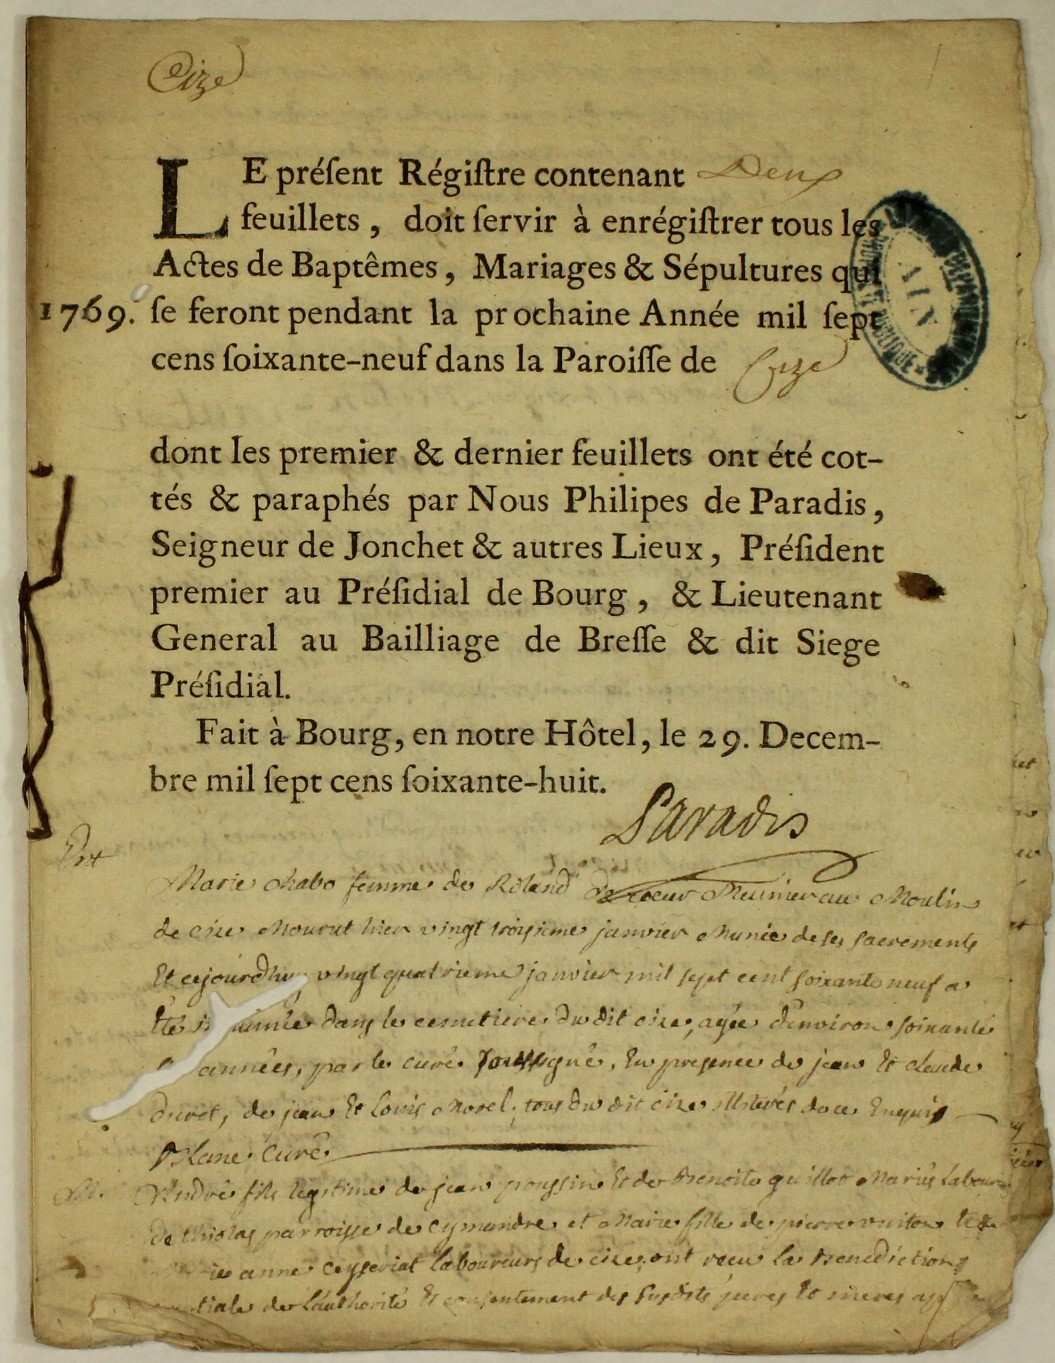 Cize
LE préſent Régiſtre contenant Deux
feuillets, doit ſervir à enrégiſtrer tous les
Actes de Baptêmes, Mariages & Sépultures qui
1769. ſe feront pendant la prochaine Année mil ſept
cens ſoixante-neuf dans la Paroiſſe de Cize
AIN
dont les premier & dernier feuillets ont été cot-
tés & paraphés par Nous Philipes de Paradis,
Seigneur de Jonchet & autres Lieux, Préſident
premier au Préſidial de Bourg, & Lieutenant
General au Bailliage de Breſſe & dit Siege
Préſidial.
Fait à Bourg, en notre Hôtel, le 29. Decem-
bre mil ſept cens ſoixante-huit.
Paradis
Marie Chabo femme de Roland Meunier au Moulin
de cize Mourut hier vingt troisieme janvier Munée de ses sacrements
Et cejourdhuy vingt quatrieme janvier mil sept cent soixante neuf a
été dans le cemetiere du dit cize, agée d'environ soixante
années, par le curé soussigné, En presence de jean Et claude
duret, de jean Et Louis Morel, tous du dit cize illiterés de ce Enquis
curé
André fils legitime de jean poussin Et de Benoite guillot Mariés Laboureurs
parroisse de et Marie fille de pierre
anne Laboureurs de cize, ont recu la Benediction
de L'authorité Et consentement des susdits peres Et meres